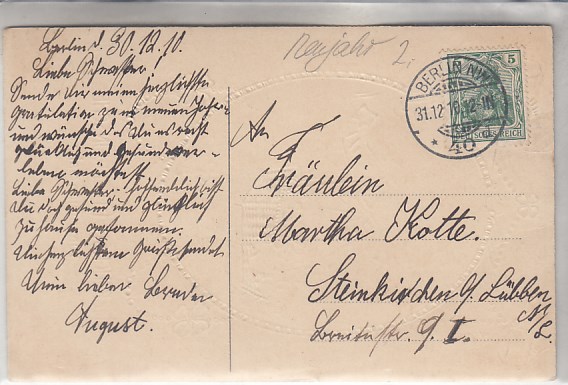 Berlin d. 30.12.10.
Liebe Schwester!
Sende Dir meinen herzlichste
Gratulation zum neuen Jahr
und wünsche das Du es recht
glücklich und Gesund ver-
leben möchtest.
Liebe Schwester hoffendlich bist
Du doch gesund und glücklich
zu Hause gekommen.
Die herzlichsten Grüße sendet
Dein lieber Bruder
August.
Neujahr 2.
BERLIN NW
31.12.10. 12-1N
* 40
5
DEUTSCHES REICH
An
Fräulein
Martha Kotte.
Steinkirchen b/ Lübben
N/L.
Breitestr. 9. I.